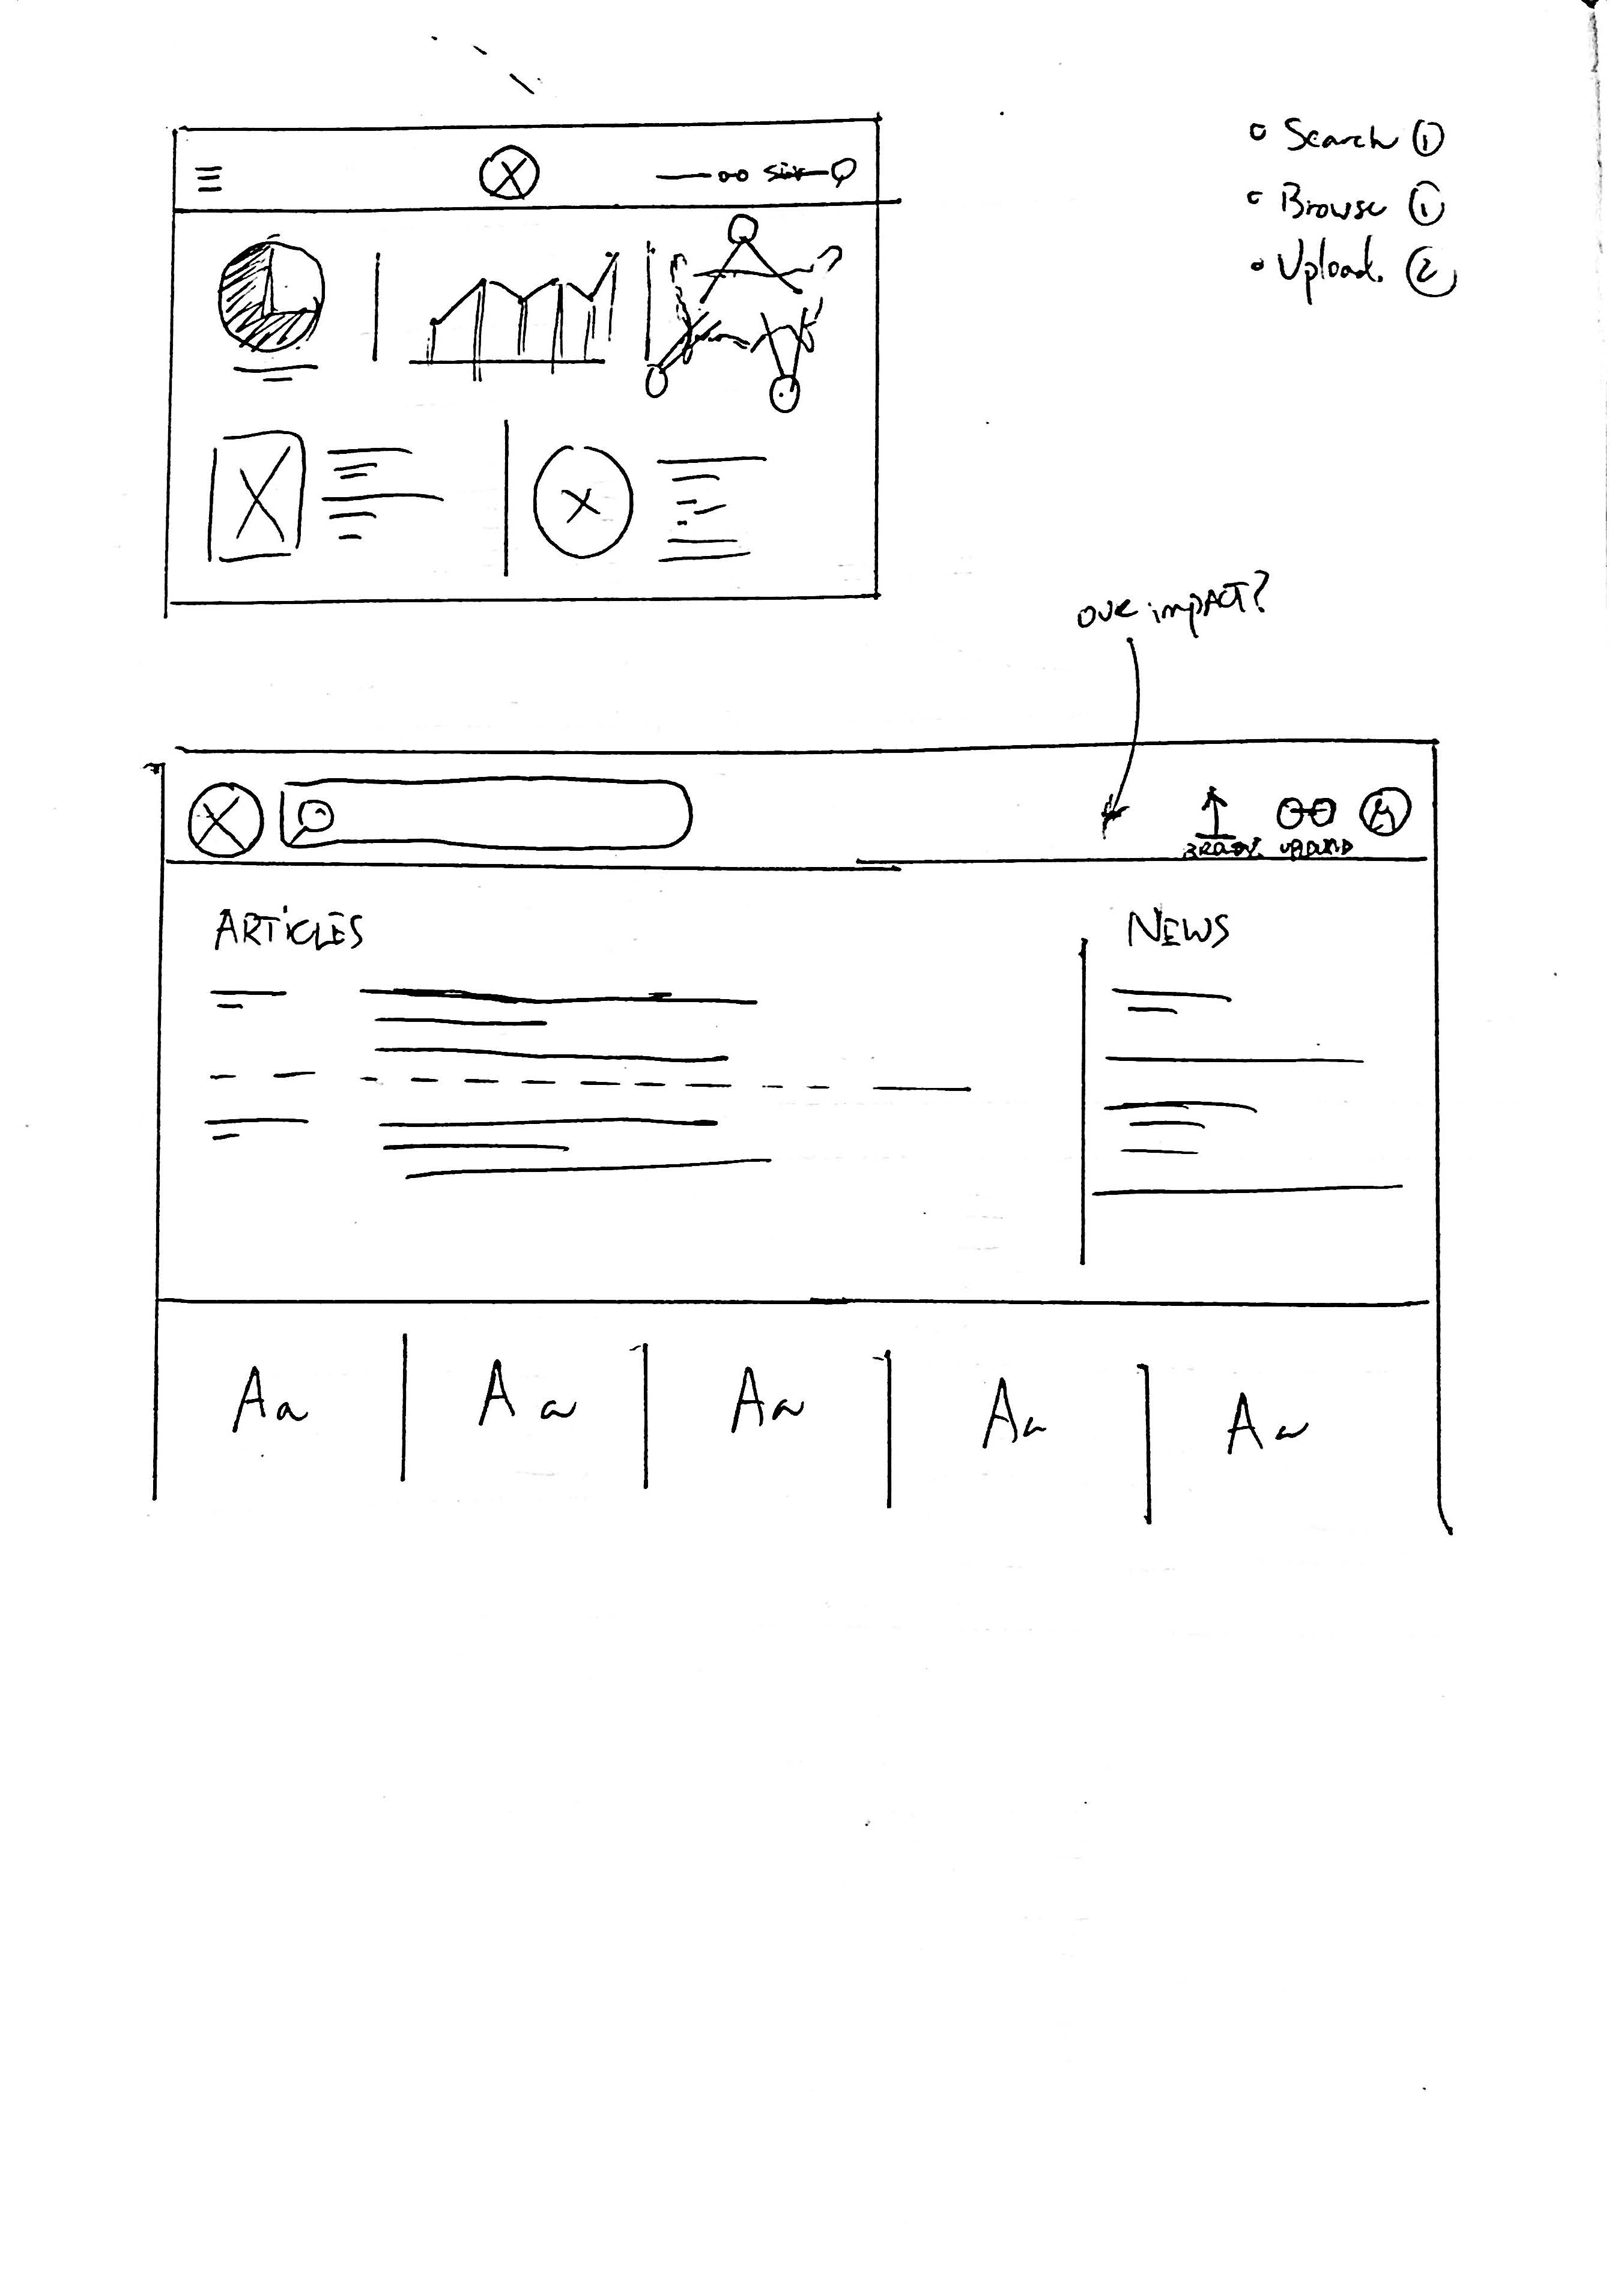 Search ①
Browse ①
Upload. ②
our impact?
BROWSE UPLOAD
ARTICLES
NEWS
Aa
Aa
Aa
Aa
Aa